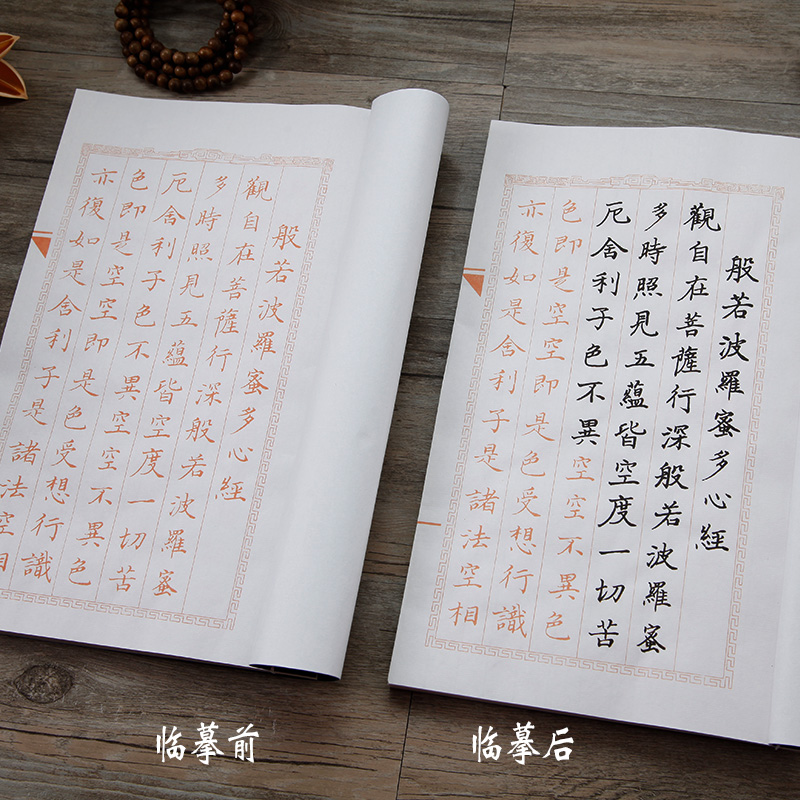 般若波羅蜜多心經
觀自在菩薩行深般若波羅蜜
多時照見五蘊皆空度一切苦
厄舍利子色不異空空不異色
色即是空空即是色受想行識
亦復如是舍利子是諸法空相
般若波羅蜜多心經
觀自在菩薩行深般若波羅蜜
多時照見五蘊皆空度一切苦
厄舍利子色不異空空不異色
色即是空空即是色受想行識
亦復如是舍利子是諸法空相
临摹前
临摹后